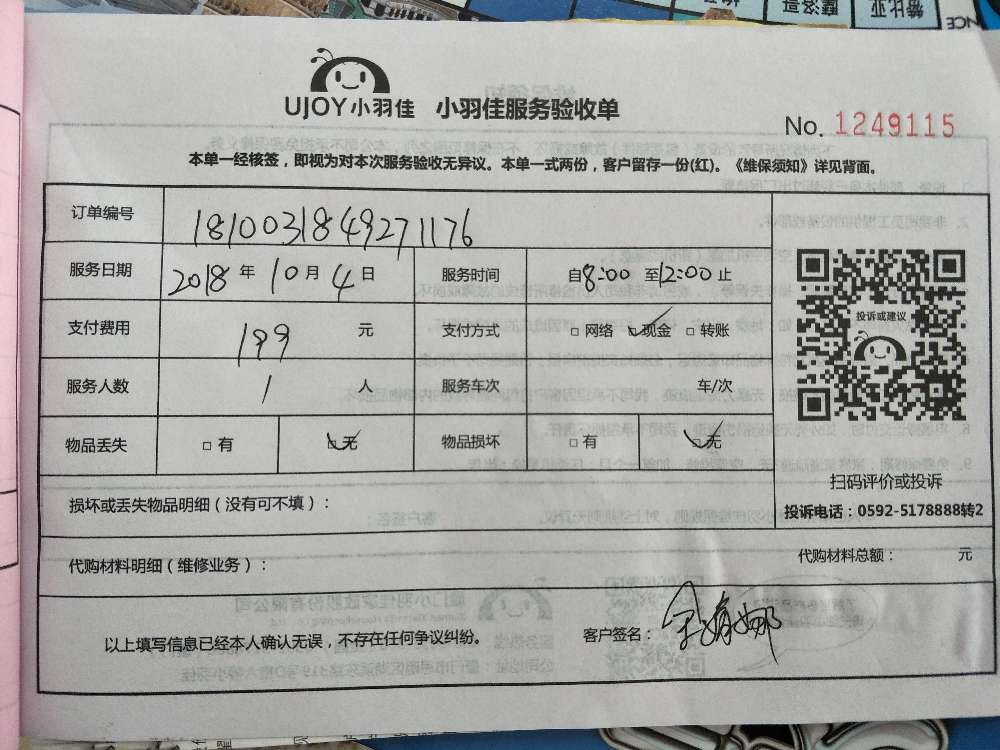 UJOY小羽佳 小羽佳服务验收单
No. 1249115
本单一经核签，即视为对本次服务验收无异议。本单一式两份，客户留存一份(红)。《维保须知》详见背面。
订单编号 1810031849271176
服务日期 2018 年 10 月 4 日 服务时间 自8:00 至12:00 止
支付费用 199 元 支付方式 □ 网络 ☑ 现金 □ 转账
服务人数 1 人 服务车次 车/次
物品丢失 □ 有 ☑ 无 物品损坏 □ 有 ☑ 无
投诉或建议
扫码评价或投诉
投诉电话：0592-5178888转2
损坏或丢失物品明细（没有可不填）：
代购材料明细（维修业务）： 代购材料总额： 元
以上填写信息已经本人确认无误，不存在任何争议纠纷。 客户签名：